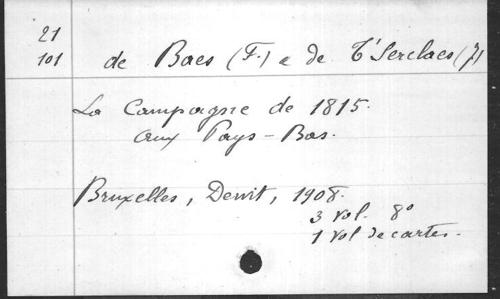 21
101
de Baes (F.) e de T'Serclaes (J)
La Campagne de 1815.
aux Pays-Bas.
Bruxelles, Dewit, 1908.
3 vol. 8°
1 vol de cartes.